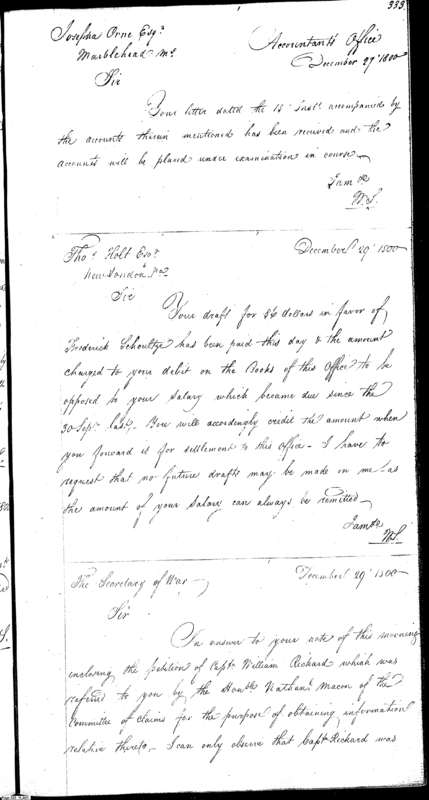 333
Josepha Orne Esqr
Marblehead Ms
Accountants Office
December 27th 1800
Sir
Your letter dated the 15 Inst. accompanied by
the accounts therein mentioned has been received and the
accounts will be placed under examination in course
I am &c
W.S.
Thos Holt Esqr
New London
December 29th 1800
Sir
Your draft for 36 dollars in favor of
Frederick Schoultze has been paid this day & the amount
charged to your debit on the Books of this Office to be
opposed to your Salary which became due since the
30 Sepr last. You will accordingly credit the amount when
you forward it for settlement to this Office - I have to
request that no future drafts may be made on me as
the amount of your Salary can always be remitted
I am &c
W.S.
The Secretary of War
December 29th 1800
Sir
In answer to your note of this morning
inclosing the petition of Capt William Rickard which was
referred to you by the Honble Nathanl Macon of the
Committee of Claims for the purpose of obtaining information
relative thereto, - I can only observe that Capt Rickard was